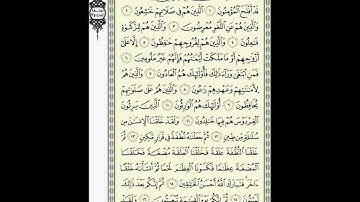 قَدْ أَفْلَحَ الْمُؤْمِنُونَ ١ الَّذِينَ هُمْ فِي صَلَاتِهِمْ خَاشِعُونَ ٢
وَالَّذِينَ هُمْ عَنِ اللَّغْوِ مُعْرِضُونَ ٣ وَالَّذِينَ هُمْ لِلزَّكَاةِ
فَاعِلُونَ ٤ وَالَّذِينَ هُمْ لِفُرُوجِهِمْ حَافِظُونَ ٥ إِلَّا عَلَىٰ
أَزْوَاجِهِمْ أَوْ مَا مَلَكَتْ أَيْمَانُهُمْ فَإِنَّهُمْ غَيْرُ مَلُومِينَ ٦
فَمَنِ ابْتَغَىٰ وَرَاءَ ذَٰلِكَ فَأُولَٰئِكَ هُمُ الْعَادُونَ ٧ وَالَّذِينَ هُمْ
لِأَمَانَاتِهِمْ وَعَهْدِهِمْ رَاعُونَ ٨ وَالَّذِينَ هُمْ عَلَىٰ صَلَوَاتِهِمْ
يُحَافِظُونَ ٩ أُولَٰئِكَ هُمُ الْوَارِثُونَ ١٠ الَّذِينَ يَرِثُونَ
الْفِرْدَوْسَ هُمْ فِيهَا خَالِدُونَ ١١ وَلَقَدْ خَلَقْنَا الْإِنْسَانَ مِنْ
سُلَالَةٍ مِنْ طِينٍ ١٢ ثُمَّ جَعَلْنَاهُ نُطْفَةً فِي قَرَارٍ مَكِينٍ ١٣
ثُمَّ خَلَقْنَا النُّطْفَةَ عَلَقَةً فَخَلَقْنَا الْعَلَقَةَ مُضْغَةً فَخَلَقْنَا
الْمُضْغَةَ عِظَامًا فَكَسَوْنَا الْعِظَامَ لَحْمًا ثُمَّ أَنْشَأْنَاهُ خَلْقًا
آخَرَ فَتَبَارَكَ اللَّهُ أَحْسَنُ الْخَالِقِينَ ١٤ ثُمَّ إِنَّكُمْ بَعْدَ ذَٰلِكَ
لَمَيِّتُونَ ١٥ ثُمَّ إِنَّكُمْ يَوْمَ الْقِيَامَةِ تُبْعَثُونَ ١٦ وَلَقَدْ